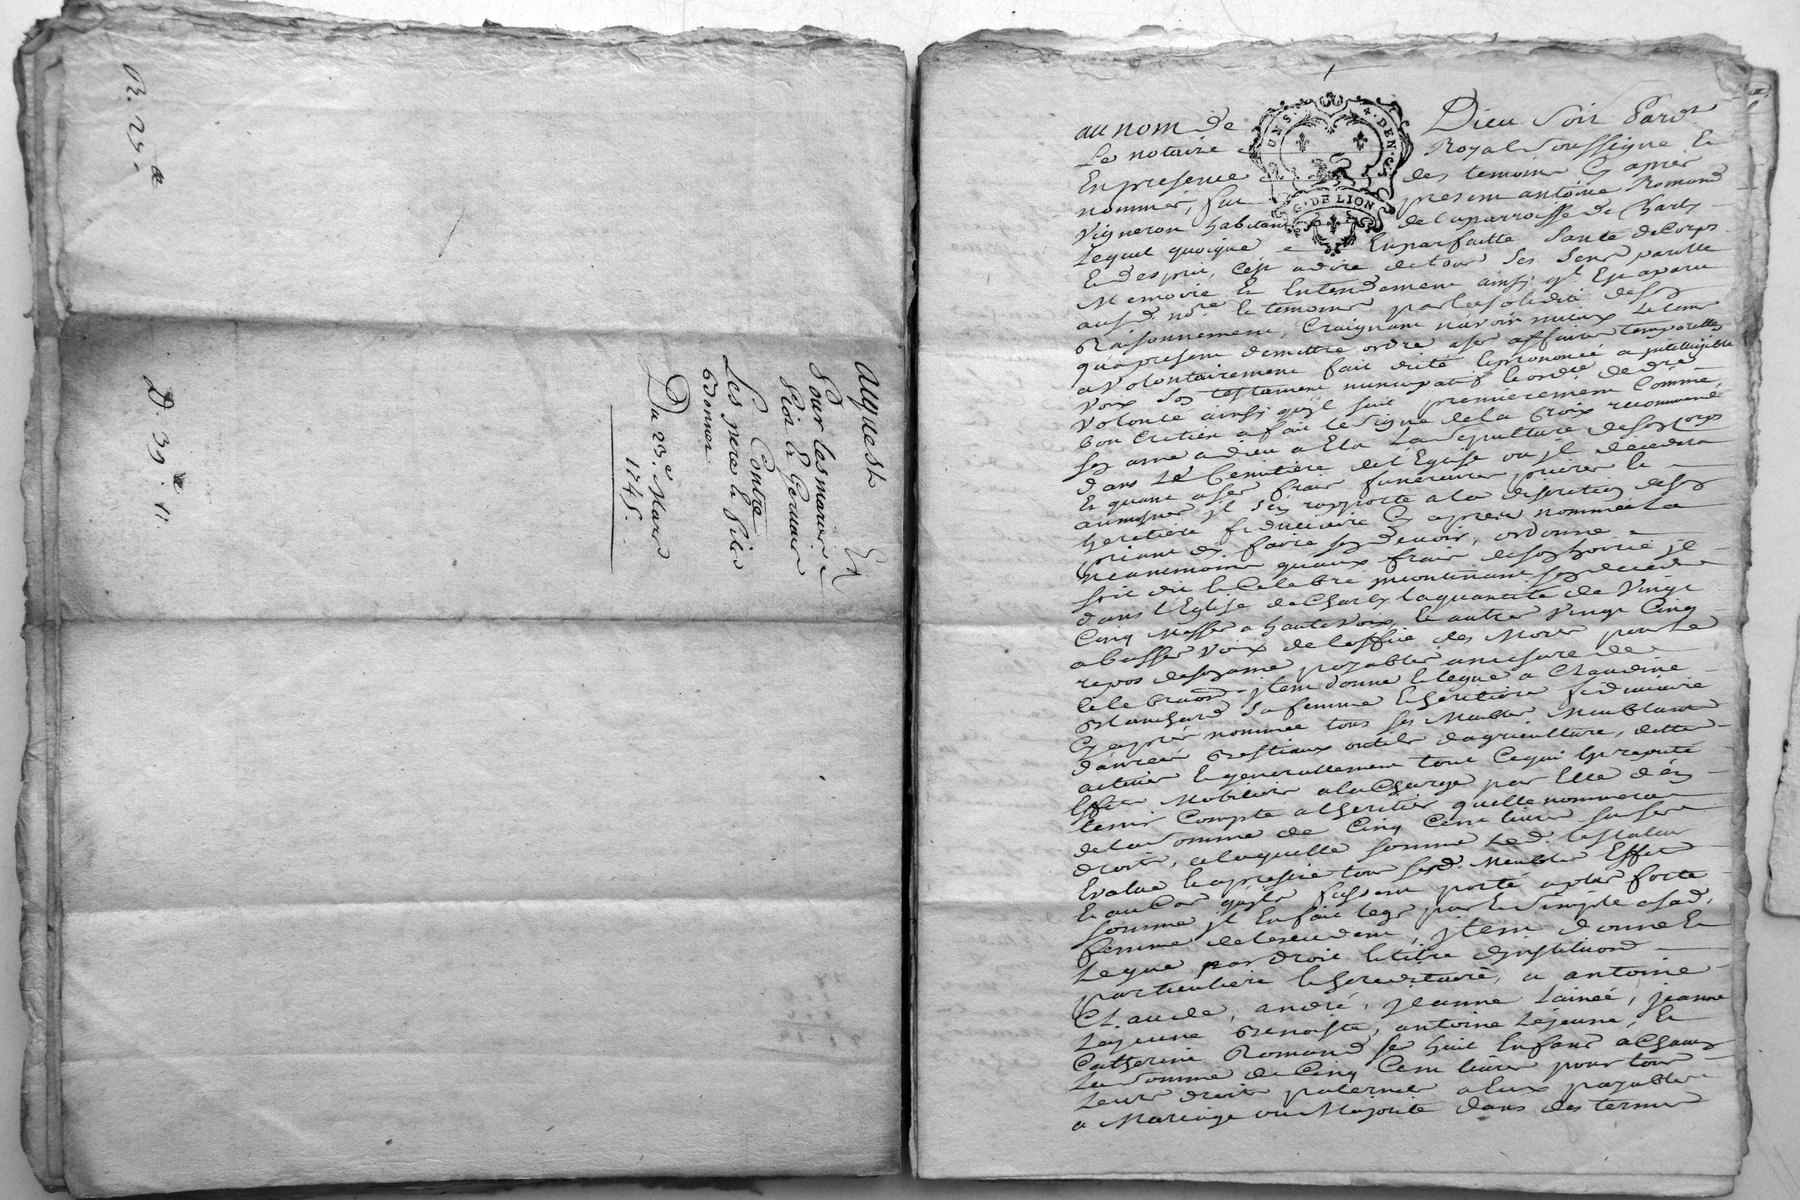 R. 25.
D. 39. 11
aquest
Pour les mariés
Gloir & Gonnair
Contre
Les pere & fils
bonner
Du 23.e Mars
1745.
au nom de Dieu Soit Pardt.
Le notaire Royal Soussigné Et
En presence des temoins Cy apres
nommés, fut present antoine Romand
vigneron habitant de la parroisse de Charly
Lequel quoique En parfaitte Santé de Corps
Et desprit, C'est adire de tous Ses Sens parolle
Memoire Et Entendement ainsi ql. Est aparu
aud. nore. Et temoins par la solidité de son
Raisonnement, Craignant navoir mieux Le tems
qu'apresent de mettre ordre a ses affaires temporelles
a volontairement fait dicté Et prononcé a intelligible
voix Son testament nuncupatif Et ordce. de dre.
volonté ainsi qu'il suit premierement Comme
bon Cretien a fait le Signe de la Croix recommandé
Son ame a dieu a Elu La Sepulture de son Corps
dans Le Cemitiere de l'Eglise ou jl decedera
Et quant a ses frais funeraires prieres Et
aumosnes jl s'en rapporte a la discretion de son
heretiere fiduciaire Cy apres nommée La
priant d'en faire son devoir, ordonne
neanmoins quaux frais de son hoirie jl
soit dit Et Celebré incontinant son decede
dans l'Eglise de Charly la quantité de Vingt
Cinq Messes a haute voix, Et autres vingt Cinq
a basses voix de l'office des Morts pour Le
repos de son ame payables amesure de
la Celebraon. jtem donne Et legue a Claudine
Blanchard Sa femme Et heretiere fiduciaire
Cy apres nommée tous ses Meubles Meublants
danrées Bestiaux outils dagriculture, dettes
actives Et generallement tout Cequi Est reputé
Effets Mobiliers ala Charge par Elle d'en
tenir Compte a lheritier quelle nommera
de la Somme de Cinq Cent livres sur ses
droits, alaquelle Somme Led. testateur
Evalue Et apretie tous Sesd. Meubles Effets
Et au Cas qu'ils fussent portés a plus forte
somme jl En fait legs pur Et Simple asad.
femme de lexcedant, jtem donne Et
Legue par droit Et titre d'institution
particuliere Et hereditaire, a antoine
Claude, andré, jeanne Lainée, jeanne
Lajeune Benoiste, antoine Lejeune, Et
Catherine Romand ses huit Enfans a Chacun
La Somme de Cinq Cent livres pour tous
Leurs droits paternels a Eux payables
a Mariage ou Majorité dans des termes